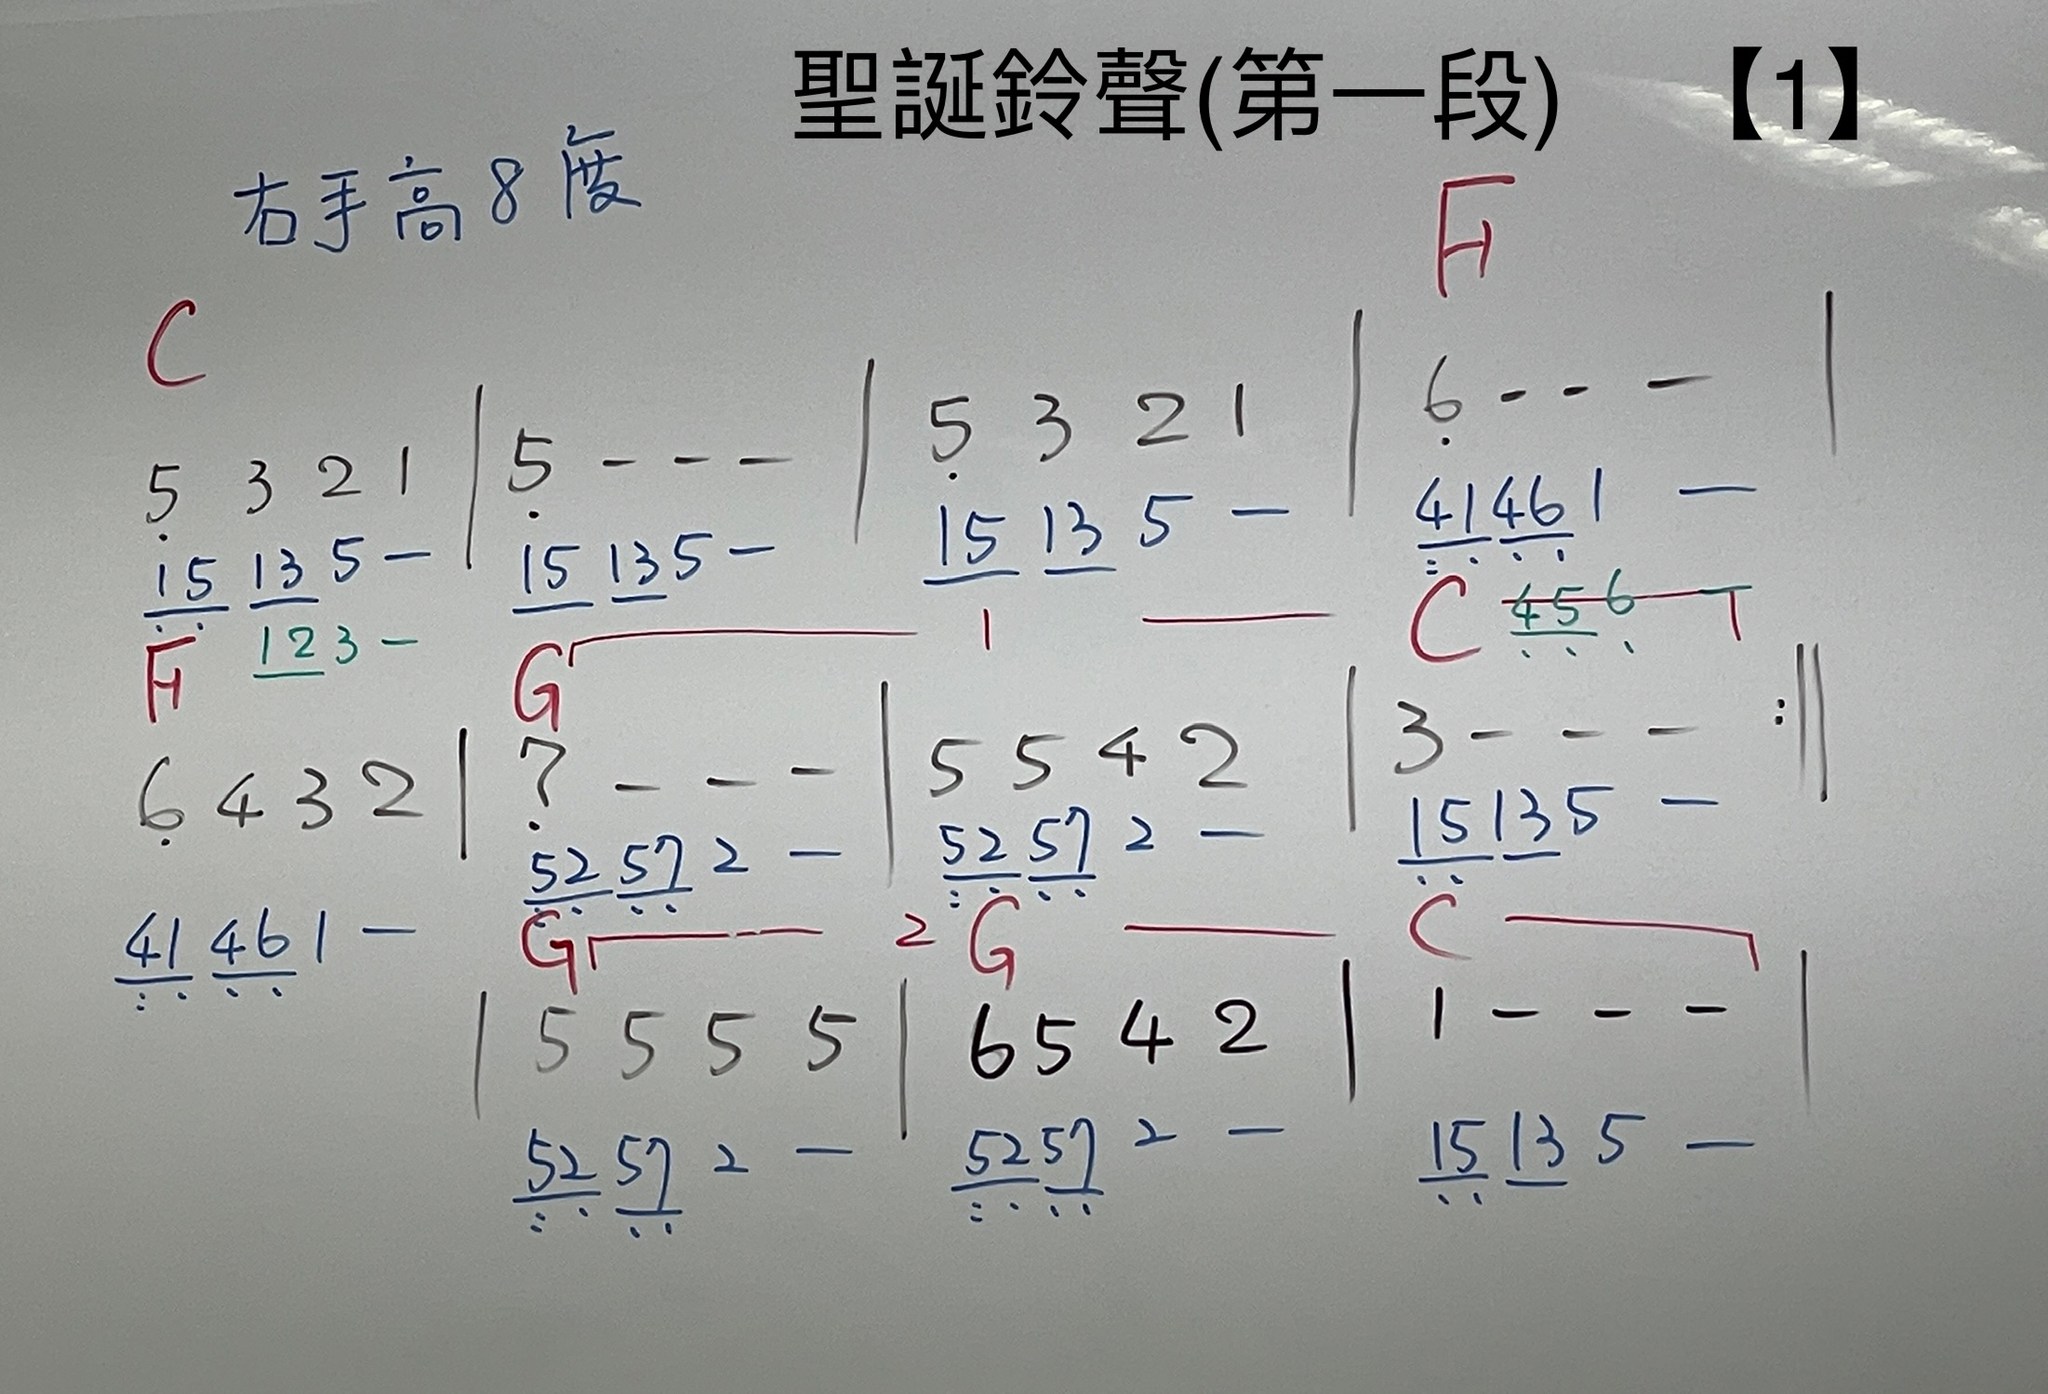 聖誕鈴聲(第一段) 【1】
右手高8度
F
C
5 3 2 1 | 5 - - - | 5 3 2 1 | 6 - - - |
15 13 5 - 15 13 5 - 15 13 5 - 41 46 1 -
12 3 - 45 6
F G 1 C
6 4 3 2 | 7 - - - | 5 5 4 2 | 3 - - - :||
41 46 1 - 52 57 2 - 52 57 2 - 15 13 5 -
G 2 G C
| 5 5 5 5 | 6 5 4 2 | 1 - - - |
52 57 2 - 52 57 2 - 15 13 5 -